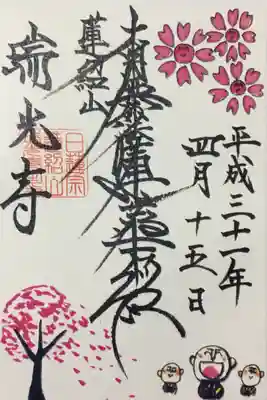 平成三十一年
四月十五日
南無妙法蓮華経
蓮紹山
瑞光寺
日蓮宗